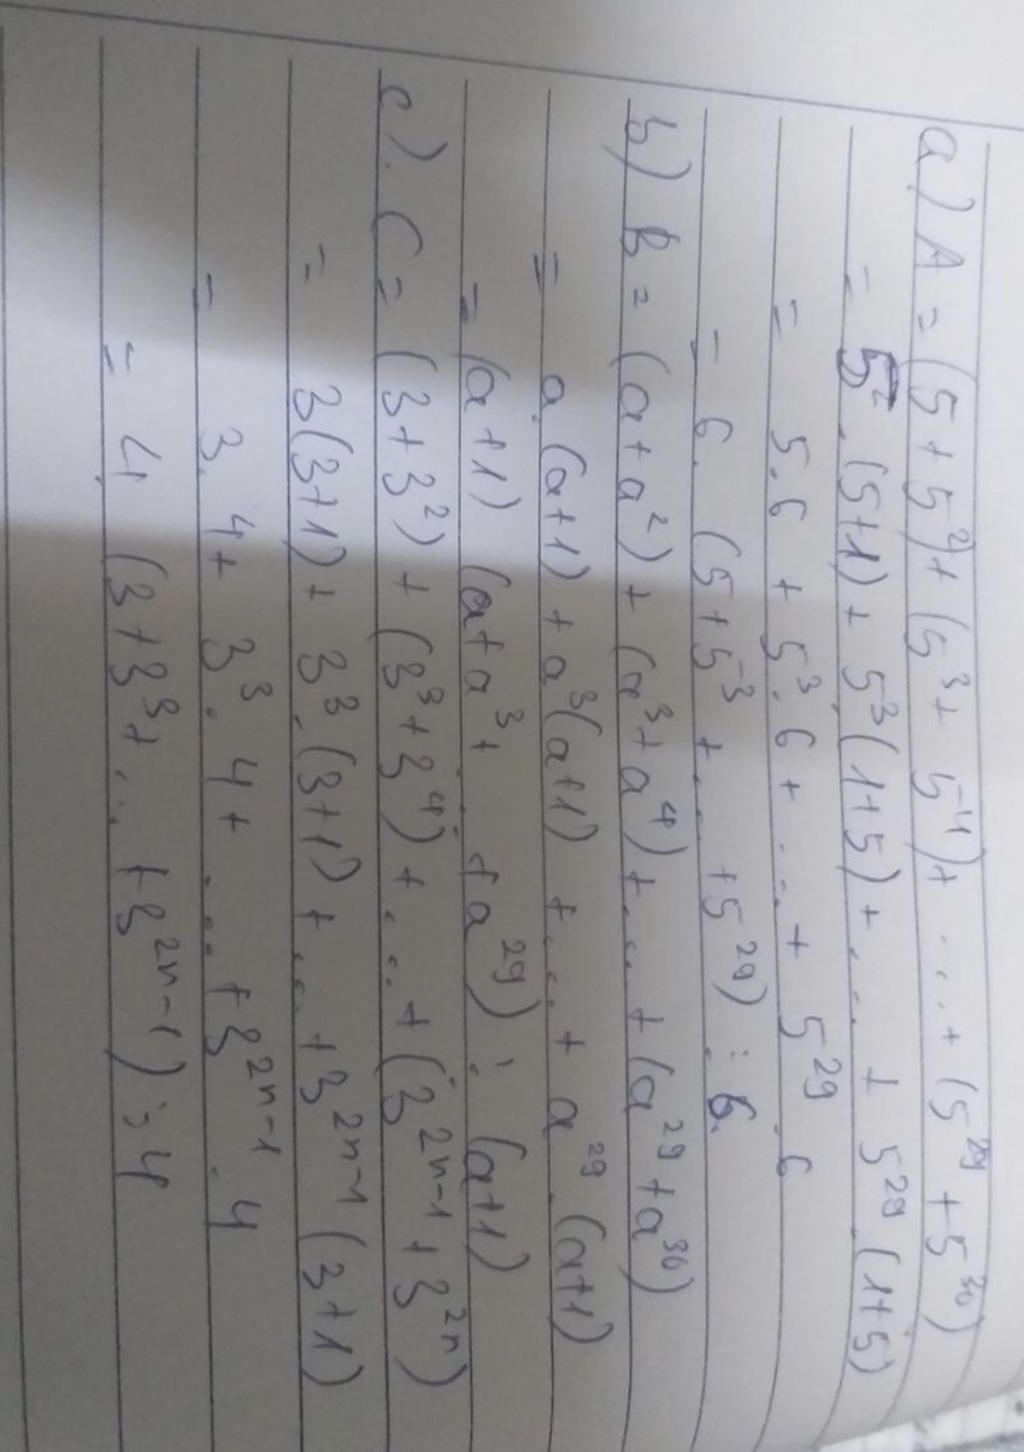 a) A = (5 + 5²) + (5³ + 5⁴) + ... + (5²⁹ + 5³⁰)
= 5 . (5+1) + 5³(1+5) + ... + 5²⁹(1+5)
= 5.6 + 5³.6 + ... + 5²⁹.6
= 6. (5+5³ + ... +5²⁹) ⋮ 6.
b) B = (a+a²) + (a³+a⁴) + ... + (a²⁹+a³⁰)
= a.(a+1) + a³(a+1) + ... + a²⁹.(a+1)
= (a+1) (a+a³+ ... +a²⁹) ⋮ (a+1)
c). C = (3+3²) + (3³+3⁴) + ... + (3²ⁿ⁻¹+3²ⁿ)
= 3(3+1) + 3³.(3+1) + ... +3²ⁿ⁻¹(3+1)
= 3.4+ 3³.4+ .... +3²ⁿ⁻¹.4
= 4. (3+3³+... +3²ⁿ⁻¹) ⋮ 4